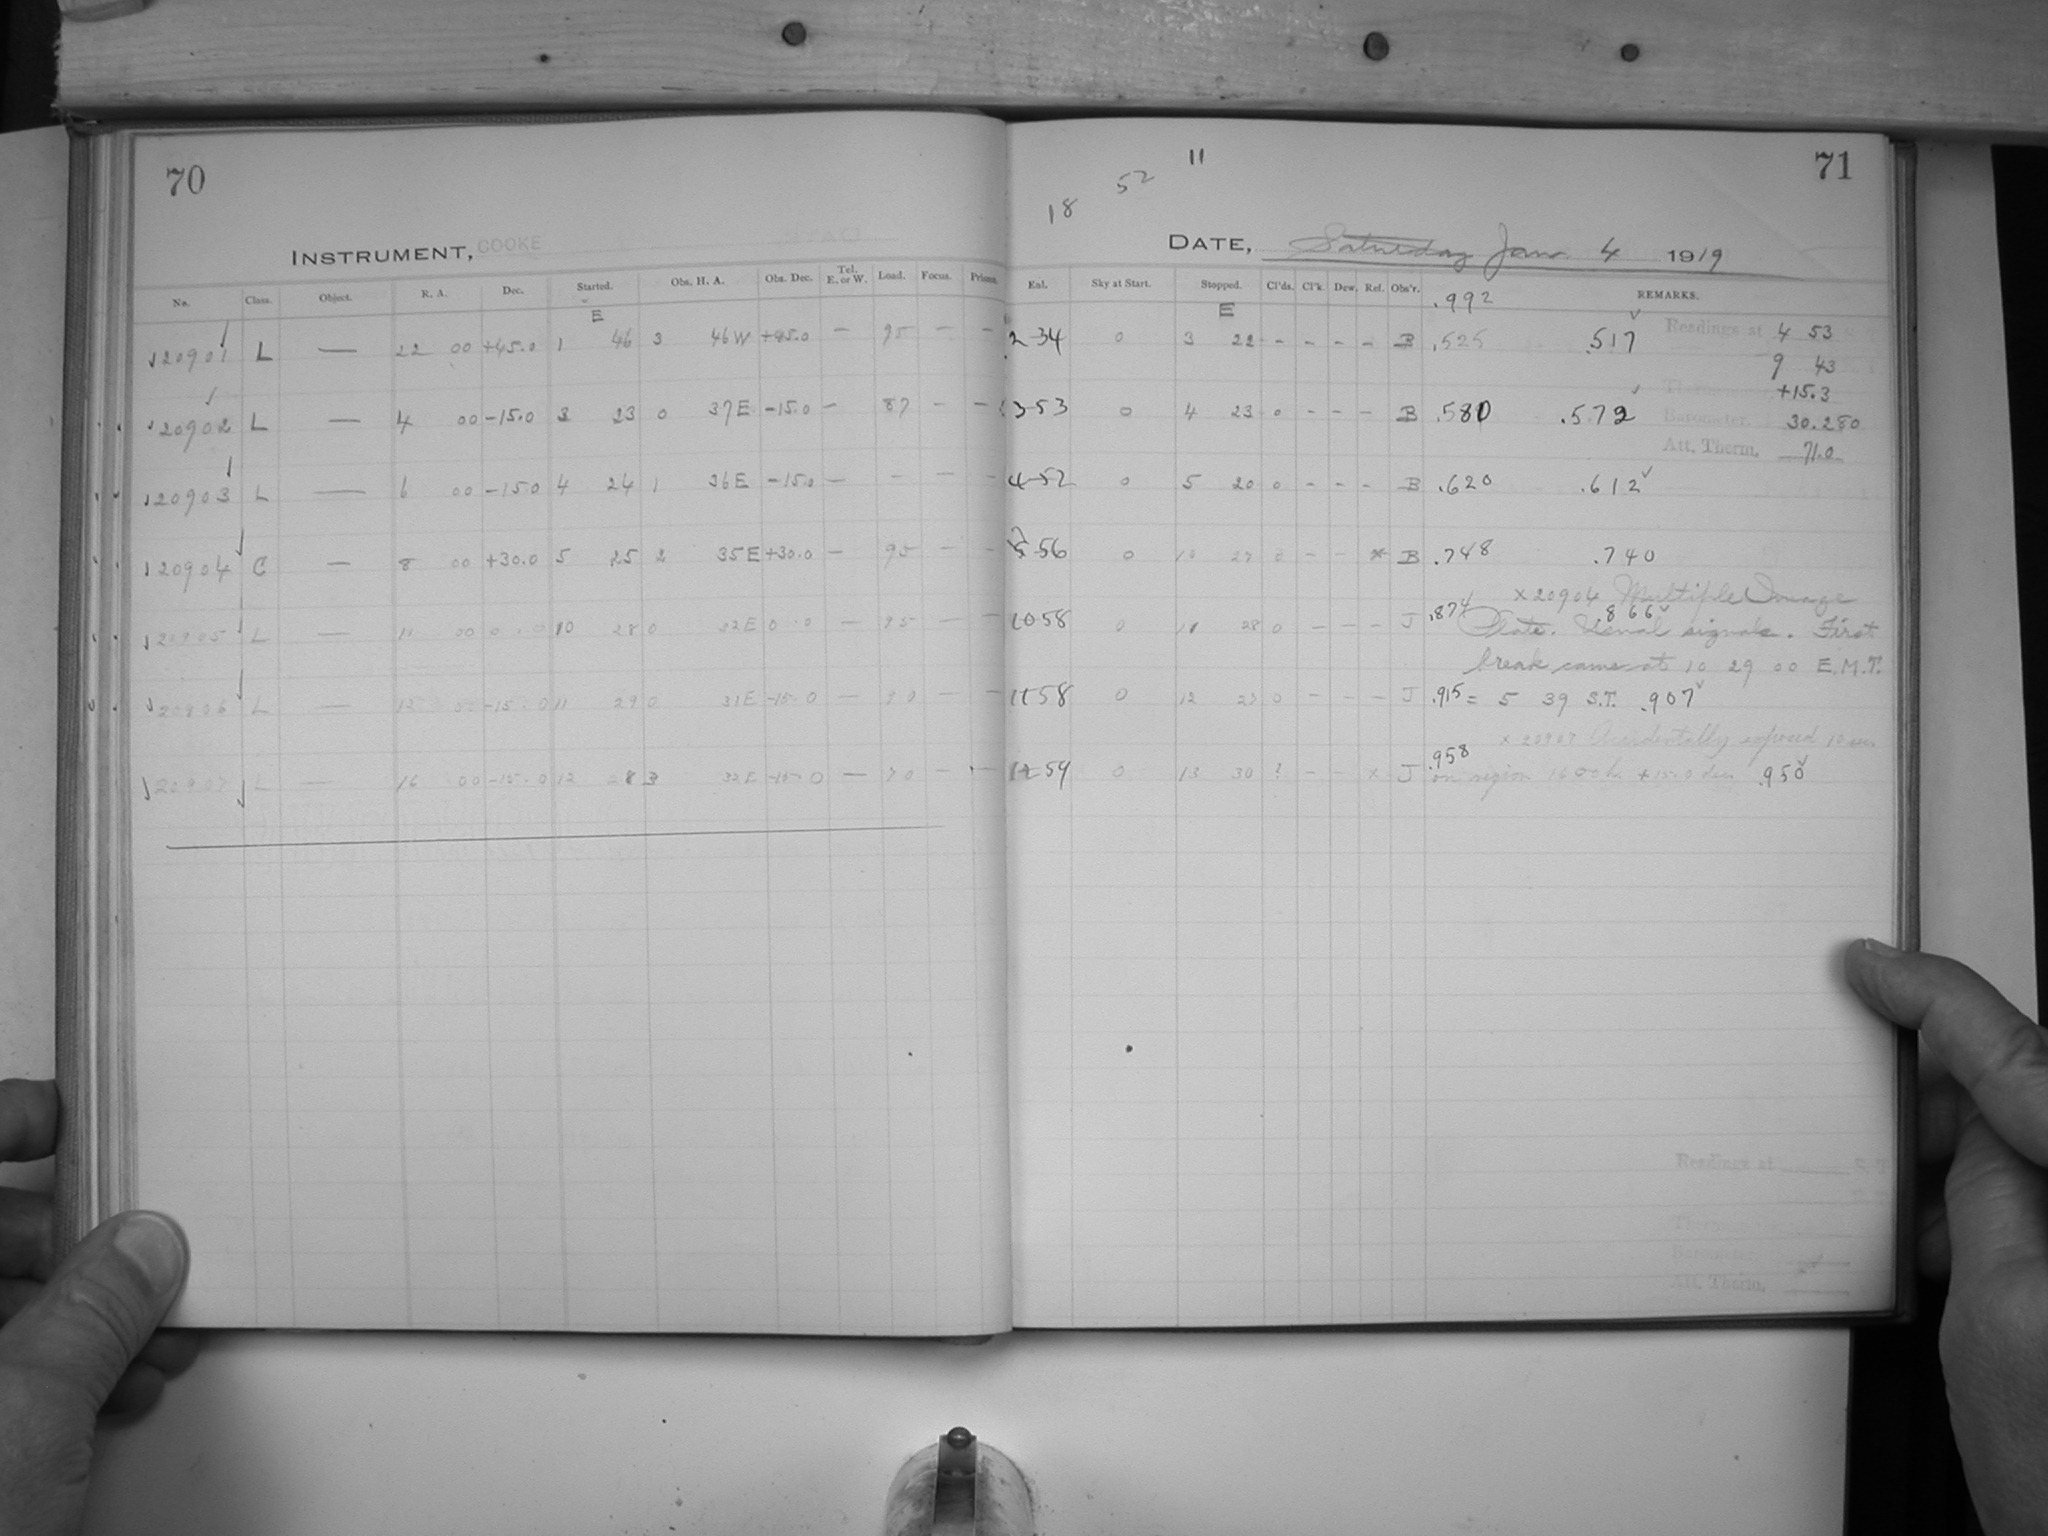 70
INSTRUMENT, COOKE
No. Class. Object. R. A. Dec. Started. Obs. H. A. Obs. Dec. Tel. E. or W. Load. Focus. Prisms.
E
20901 L — 22 00 +45.0 1 46 3 46 W +45.0 — 95 — —
20902 L — 4 00 -15.0 3 23 0 37 E -15.0 — 87 — —
20903 L — 6 00 -15.0 4 24 1 36 E -15.0 — — — —
20904 C — 8 00 +30.0 5 25 2 35 E +30.0 — 95 — —
20905 L — 11 00 0.0 10 28 0 32 E 0.0 — 95 — —
20906 L — 12 00 -15.0 11 29 0 31 E -15.0 — 90 — —
20907 L — 16 00 -15.0 12 28 3 32 E -15.0 — 90 — —
71
18 52 11
DATE, Saturday Jan. 4 1919
Eal. Sky at Start. Stopped. Cl'ds. Cl'k Dew. Ref. Obs'r. REMARKS.
E .992
2-34 0 3 22 - - - - B .525 .517 Readings at 4 53
9 43
+15.3
3-53 0 4 23 0 - - - B .580 .572 Barometer. 30.280
Att. Therm. 71.0
4-52 0 5 20 0 - - - B .620 .612
5-56 0 10 27 0 - - x B .748 .740
x 20904 Multiple Image
10-58 0 11 28 0 - - - J .874 .866
Plate. Usual signals. First
break came at 10 29 00 E.M.T.
11-58 0 12 27 0 - - - J .915 = 5 39 S.T. .907
x 20907 Accidentally exposed 10 sec
12-59 0 13 30 ? - - x J .958 on region 16 00 h. +15.0 dec .950
Readings at
Barometer.
Att. Therm.